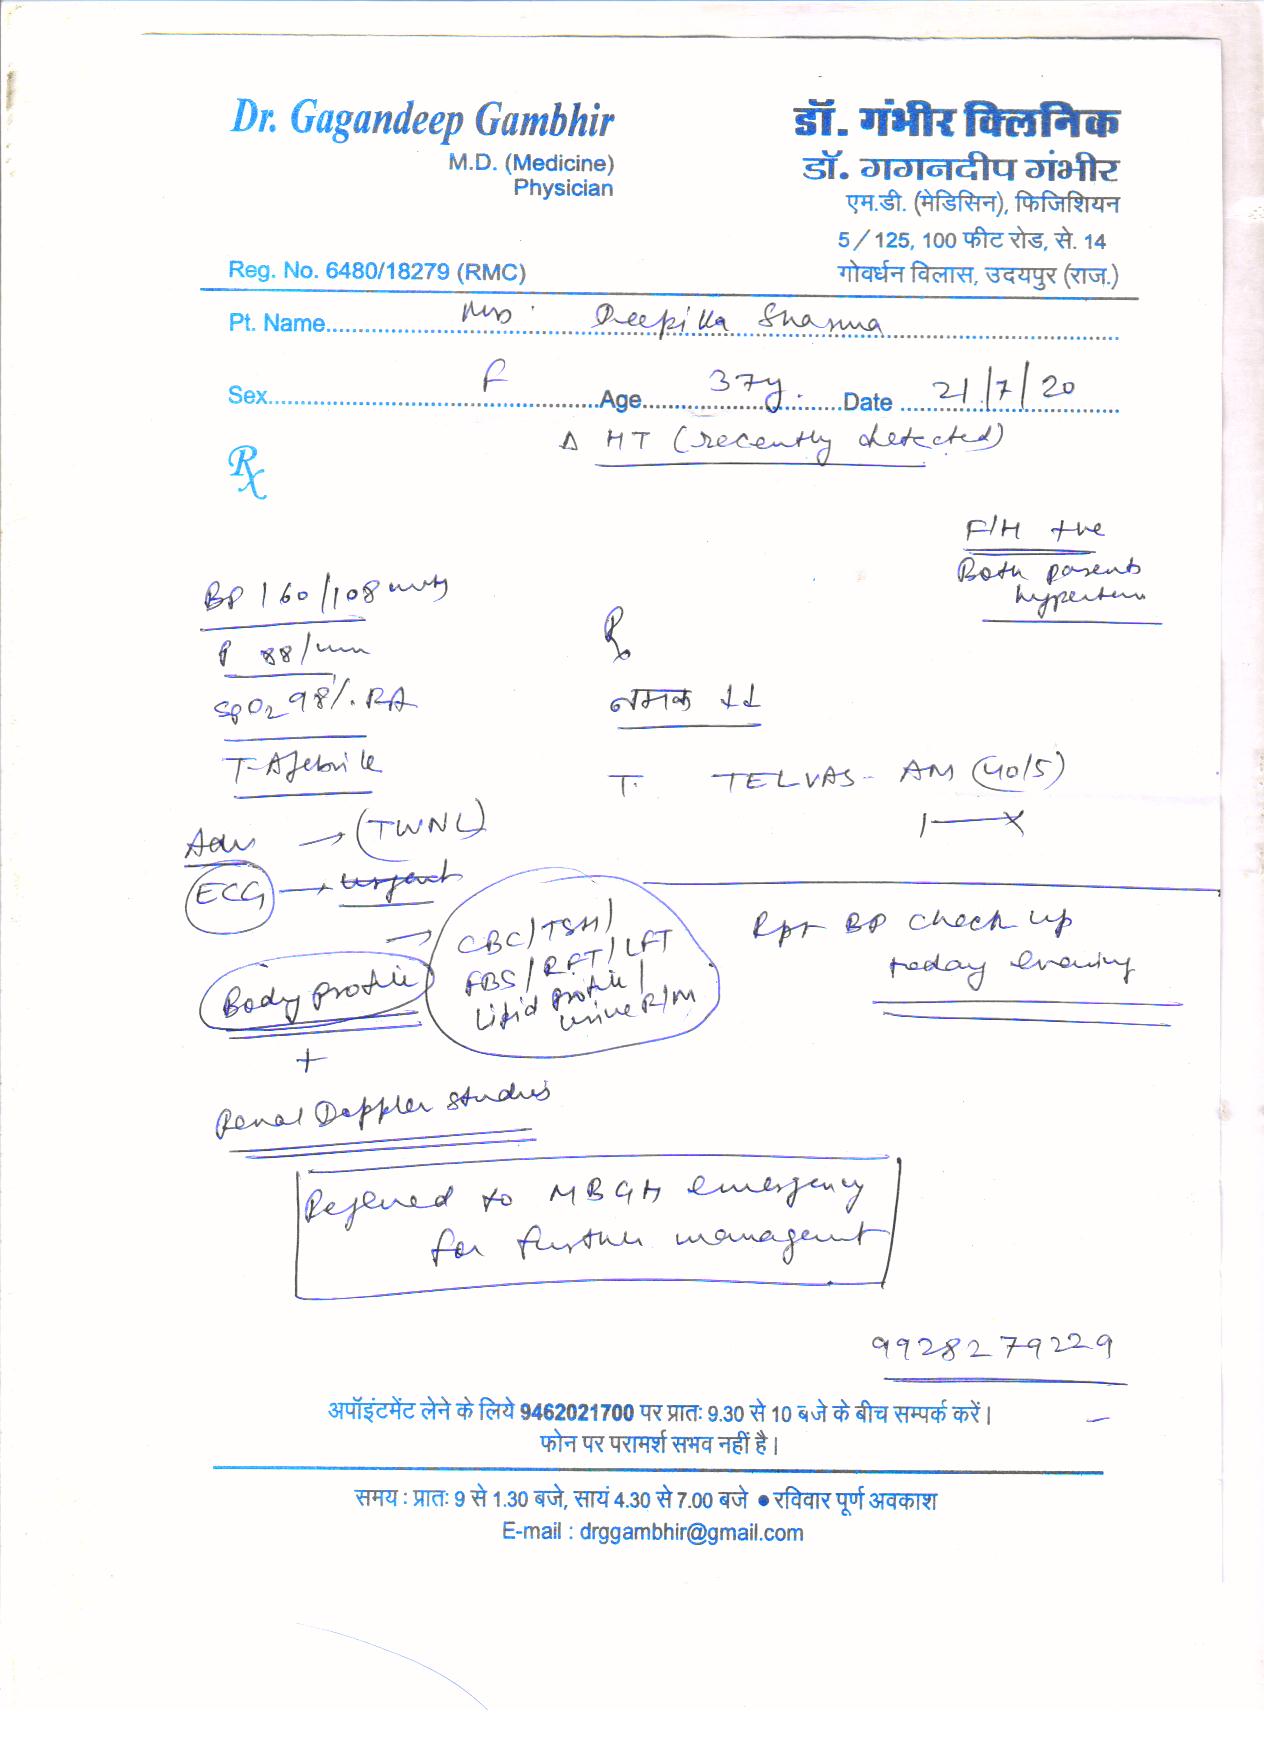 Dr. Gagandeep Gambhir
M.D. (Medicine)
Physician
Reg. No. 6480/18279 (RMC)
डॉ. गंभीर क्लिनिक
डॉ. गगनदीप गंभीर
एम.डी. (मेडिसिन), फिजिशियन
5/125, 100 फीट रोड, से. 14
गोवर्धन विलास, उदयपुर (राज.)
Pt. Name Mrs. Deepika Sharma
Sex F Age 37y. Date 21/7/20
Rx
Δ HT (recently detected)
F/H +ve
Both parents
BP 160/108 mmHg
P 88/min
SpO2 98%. RA
T-Afebrile
Rx
नमक ↓↓
T. TELVAS-AM (40/5)
1—x
Adv → (TWNL)
ECG → urgent
Body profile → CBC/TSH/
FBS/RFT/LFT
Lipid profile/
urine R/M
+
Renal Doppler studies
Rpt BP check up
today evening
Refered to MBGH emergency
for further managemt
9928279229
अपॉइंटमेंट लेने के लिये 9462021700 पर प्रातः 9.30 से 10 बजे के बीच सम्पर्क करें।
फोन पर परामर्श सभव नहीं है।
समय : प्रातः 9 से 1.30 बजे, सायं 4.30 से 7.00 बजे ● रविवार पूर्ण अवकाश
E-mail : drggambhir@gmail.com